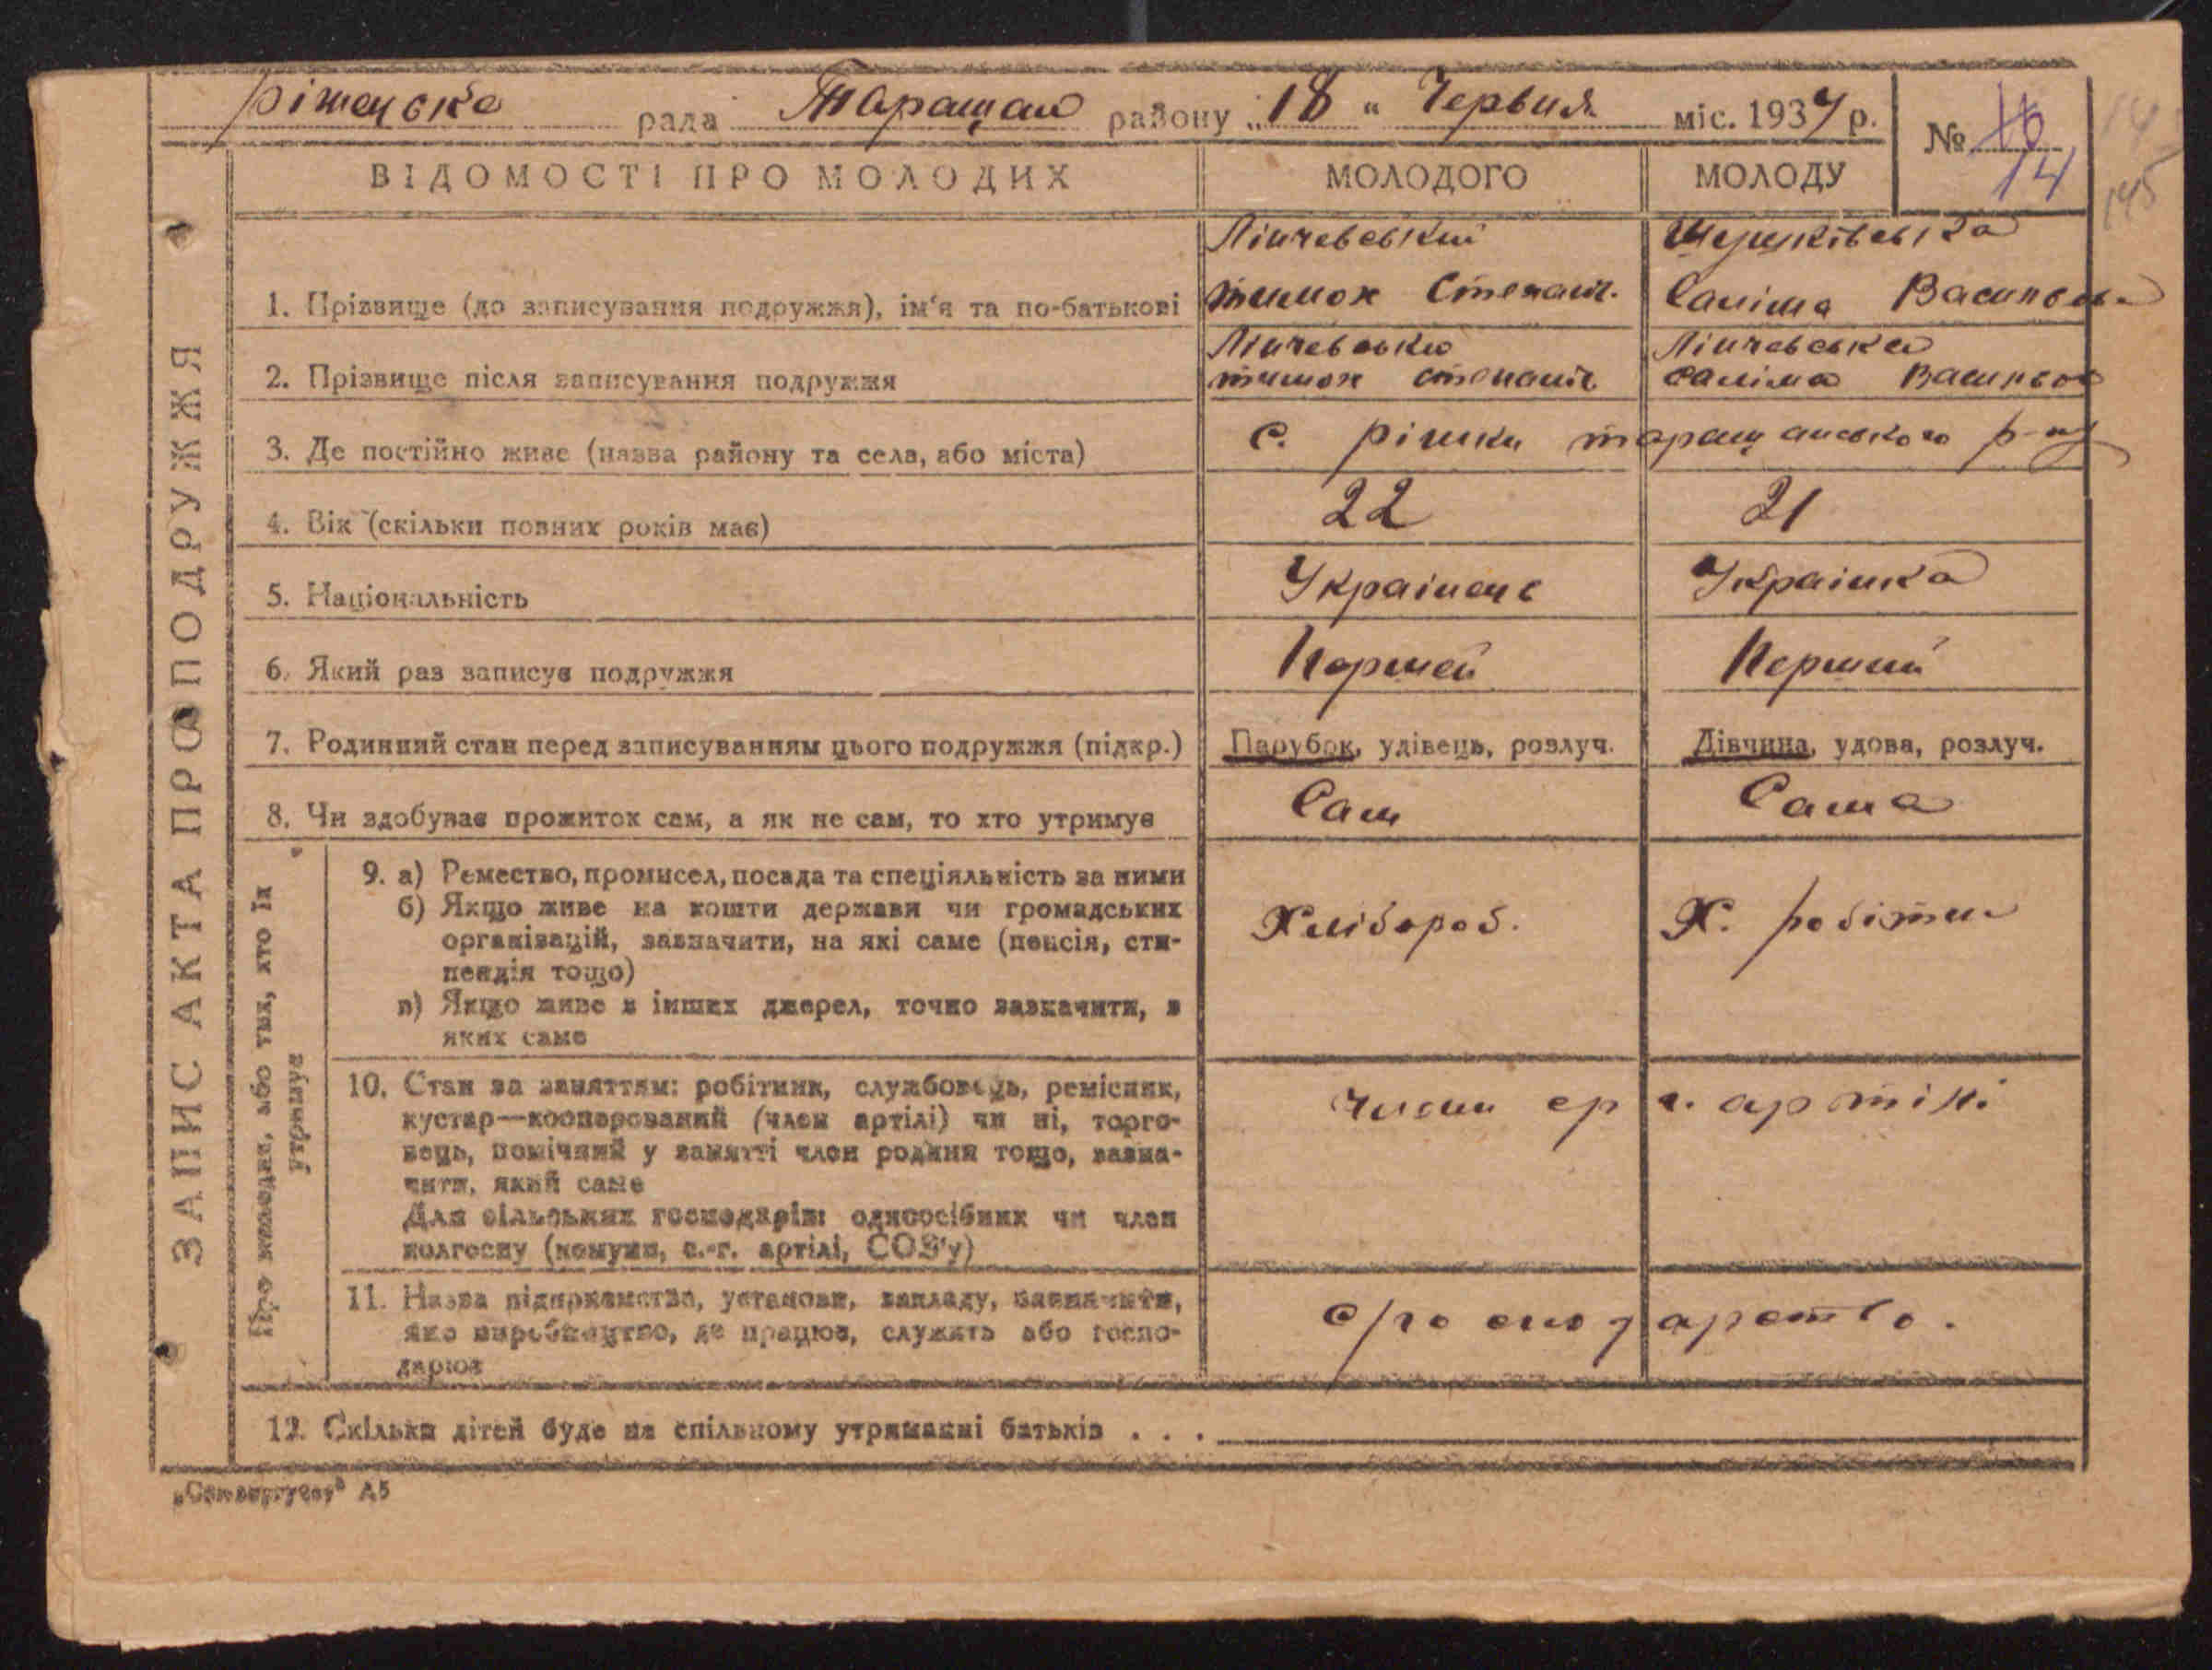 рішенське рада Таращан району „18" Червня міс. 1934 р.
№ 16
14
145
ВІДОМОСТІ ПРО МОЛОДИХ
МОЛОДОГО
МОЛОДУ
ЗАПИС АКТА ПРО ПОДРУЖЖЯ
1. Прізвище (до записування подружжя), ім'я та по-батькові
Лінчевський
тимох Степанів.
Саліма Васильов.
2. Прізвище після записування подружжя
Лінчевськи
тимох степанів.
Лінчевська
саліма Васильов
3. Де постійно живе (назва району та села, або міста)
с. рішки таращанського р-ну
4. Вік (скільки повних років має)
22
21
5. Національність
Українець
Українка
6. Який раз записує подружжя
Першей
Перший
7. Родинний стан перед записуванням цього подружжя (підкр.)
Парубок, удівець, розлуч.
Дівчина, удова, розлуч.
8. Чи здобуває прожиток сам, а як не сам, то хто утримує
Сам
Сама
Про молодих, або тих, хто їх
утримує
9. а) Ремество, промисел, посада та спеціяльність за ними
б) Якщо живе на кошти держави чи громадських
організацій, зазначити, на які саме (пенсія, сти-
пендія тощо)
в) Якщо живе з інших джерел, точно зазначити, з
яких саме
Хлібороб.
Х. робітни
10. Стан за заняттям: робітник, службовець, ремісник,
кустар—кооперований (член артілі) чи ні, торго-
вець, помічний у занятті член родини тощо, зазна-
чити, який саме
Для сільських господарів: одноосібник чи член
колгоспу (комуни, с.-г. артілі, СОЗ'у)
член с г. артілі
11. Назва підприємства, установи, закладу, зазначити,
яке виробництво, де працює, служить або госпо-
дарює
с/господарство.
12. Скільки дітей буде на спільному утриманні батьків . . .
А5